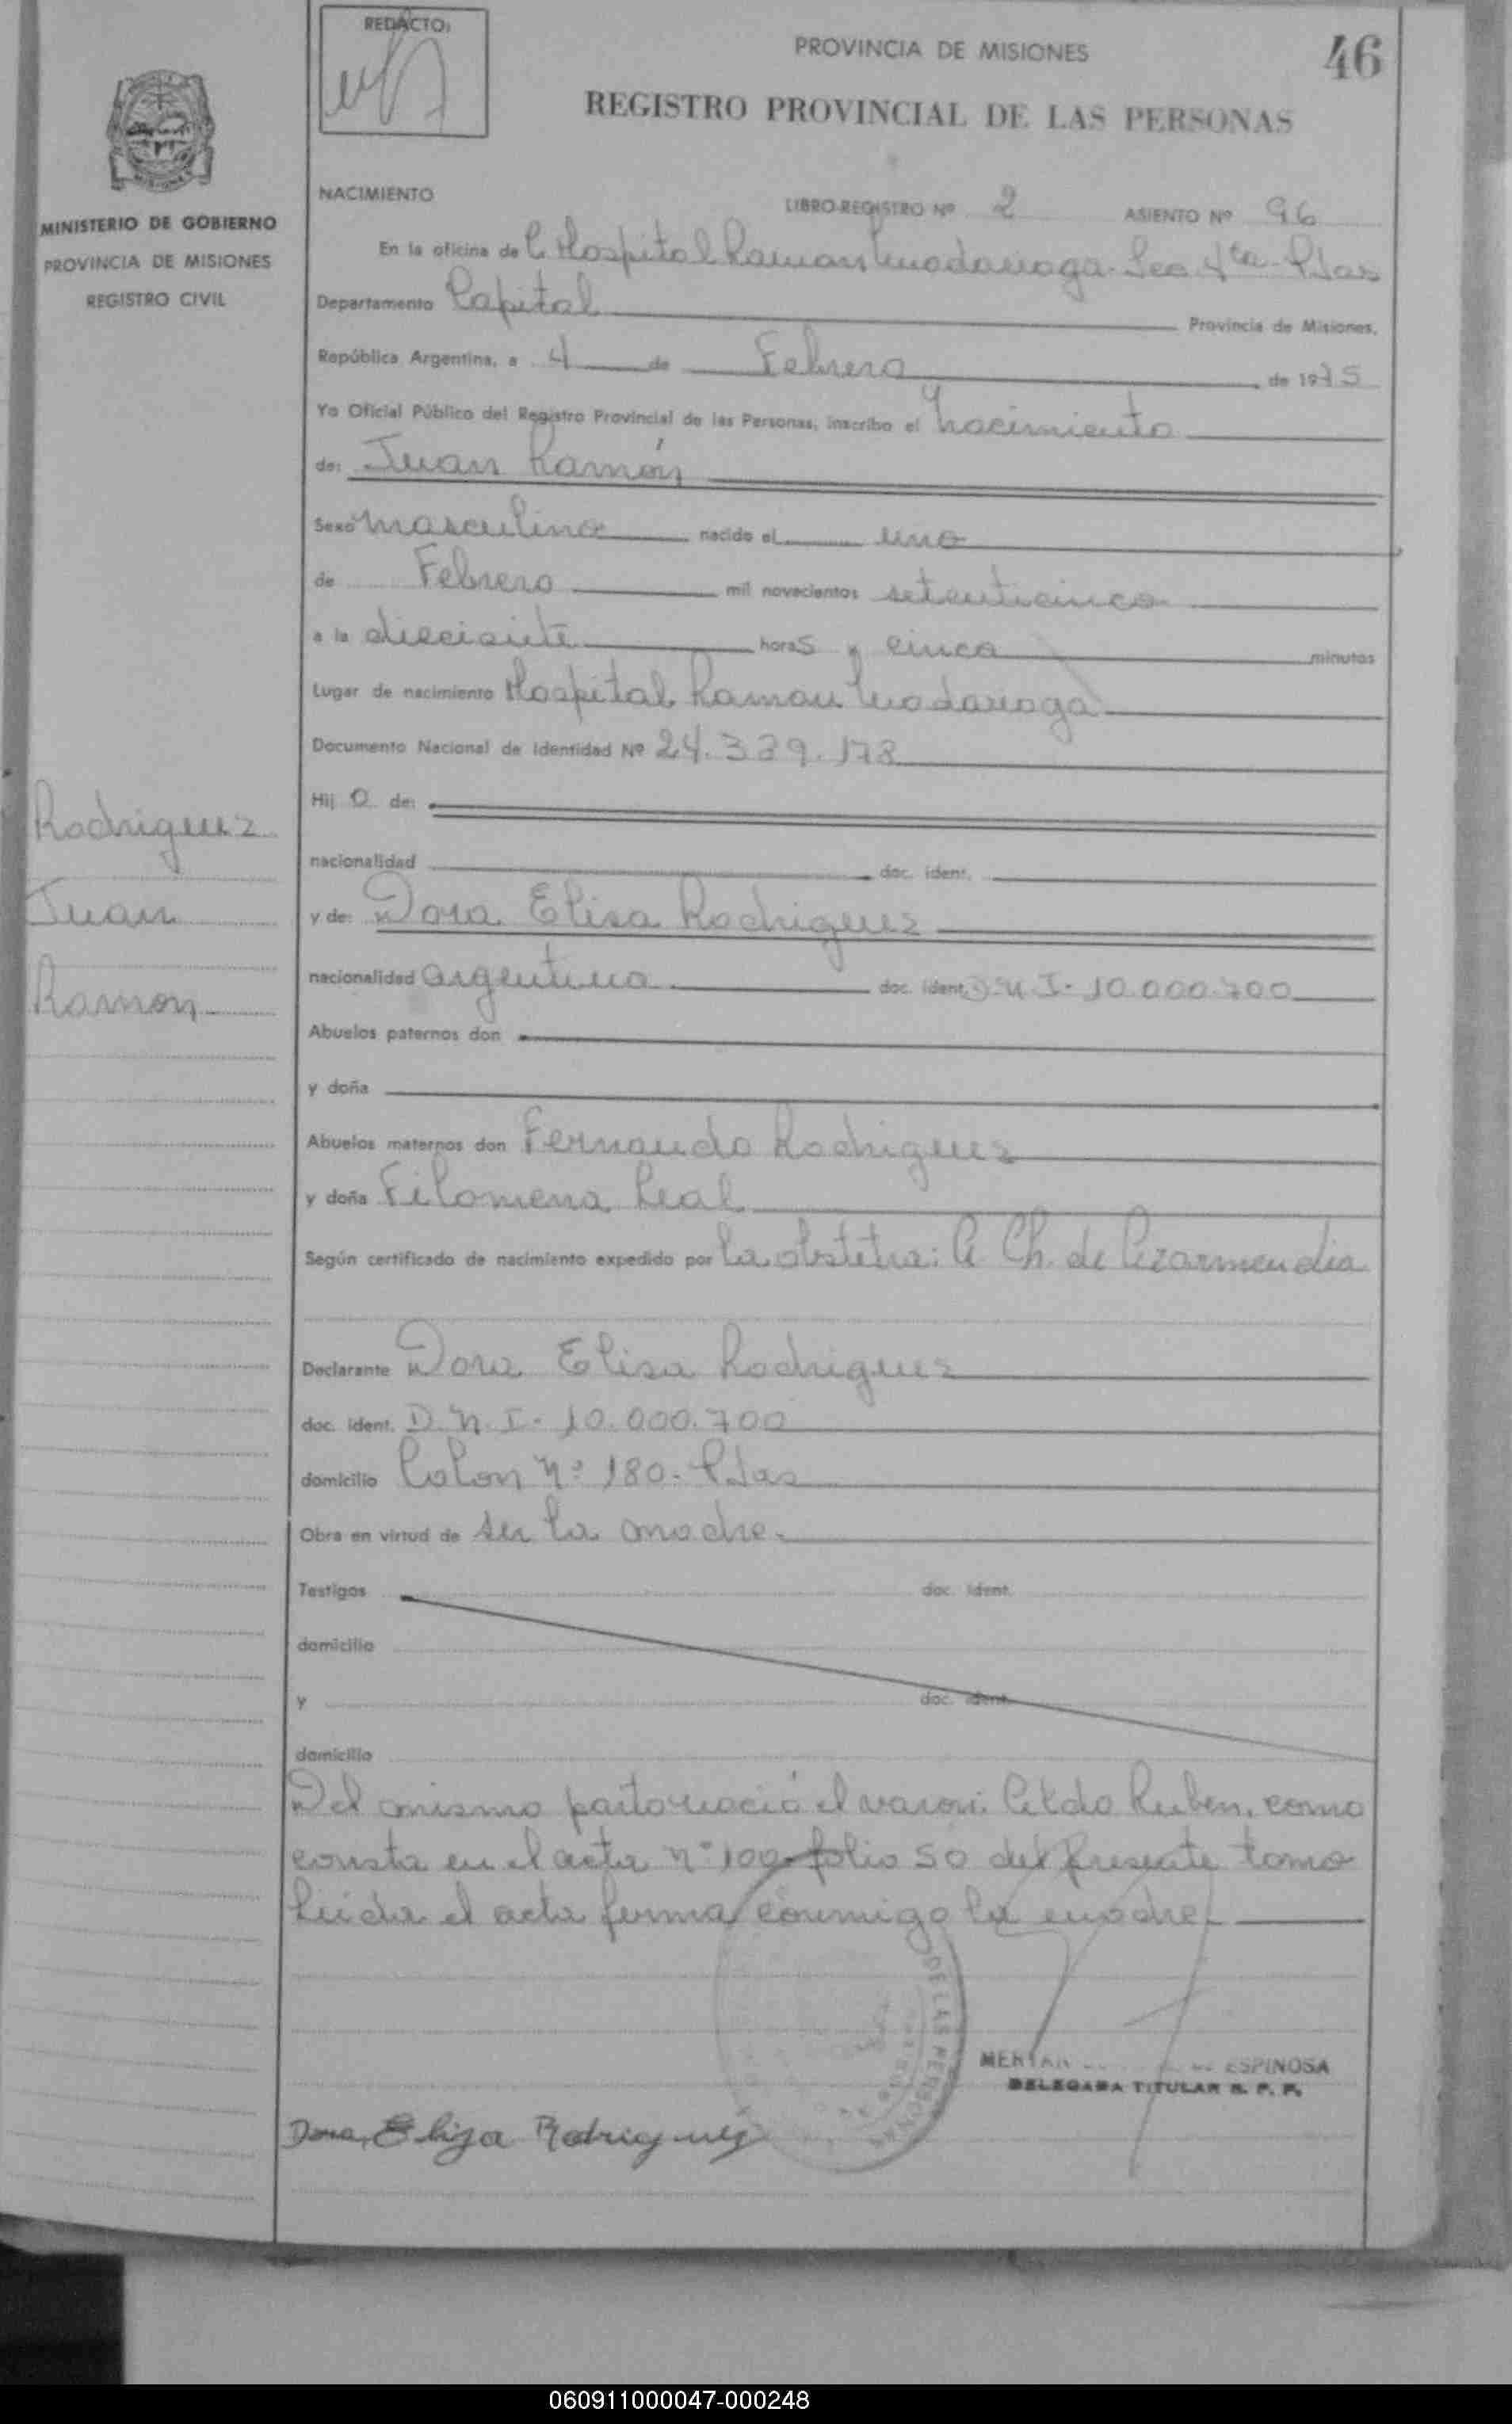 REDACTO:
PROVINCIA DE MISIONES
46
REGISTRO PROVINCIAL DE LAS PERSONAS
MISIONES
MINISTERIO DE GOBIERNO
PROVINCIA DE MISIONES
REGISTRO CIVIL
NACIMIENTO
LIBRO-REGISTRO Nº 2 ASIENTO Nº 96
En la oficina de Hospital Ramon Madariaga. Sec 4ta Pdas
Departamento Capital Provincia de Misiones,
República Argentina, a 4 de Febrero de 1975
Yo Oficial Público del Registro Provincial de las Personas, inscribo el nacimiento
de: Juan Ramón
Sexo masculino nacido el uno
de Febrero mil novecientos setenticinco
a la diecisiete horas y cinco minutos
Lugar de nacimiento Hospital Ramon Madariaga
Documento Nacional de Identidad Nº 24.339.178
Hij o de:
nacionalidad doc. ident.
y de: Dora Elisa Rodriguez
nacionalidad argentina doc. ident. D.N.I. 10.000.700
Abuelos paternos don
y doña
Abuelos maternos don Fernando Rodriguez
y doña Filomena Leal
Según certificado de nacimiento expedido por la obstetra: A. Ch. de Azarmendia
Declarante Dora Elisa Rodriguez
doc. ident. D.N.I. 10.000.700
domicilio Colon Nº 180. Pdas
Obra en virtud de ser la madre.
Testigos doc. ident.
domicilio
y doc. ident.
domicilio
Del mismo parto nació el varon: Aldo Ruben, como
consta en el acta Nº 100 folio 50 del presente tomo
Leida el acta firma conmigo la madre.
DE LAS PERSONAS
ESPINOSA
DELEGADA TITULAR R. P. P.
Dora Elisa Rodriguez
Rodriguez
Juan
Ramon
060911000047-000248